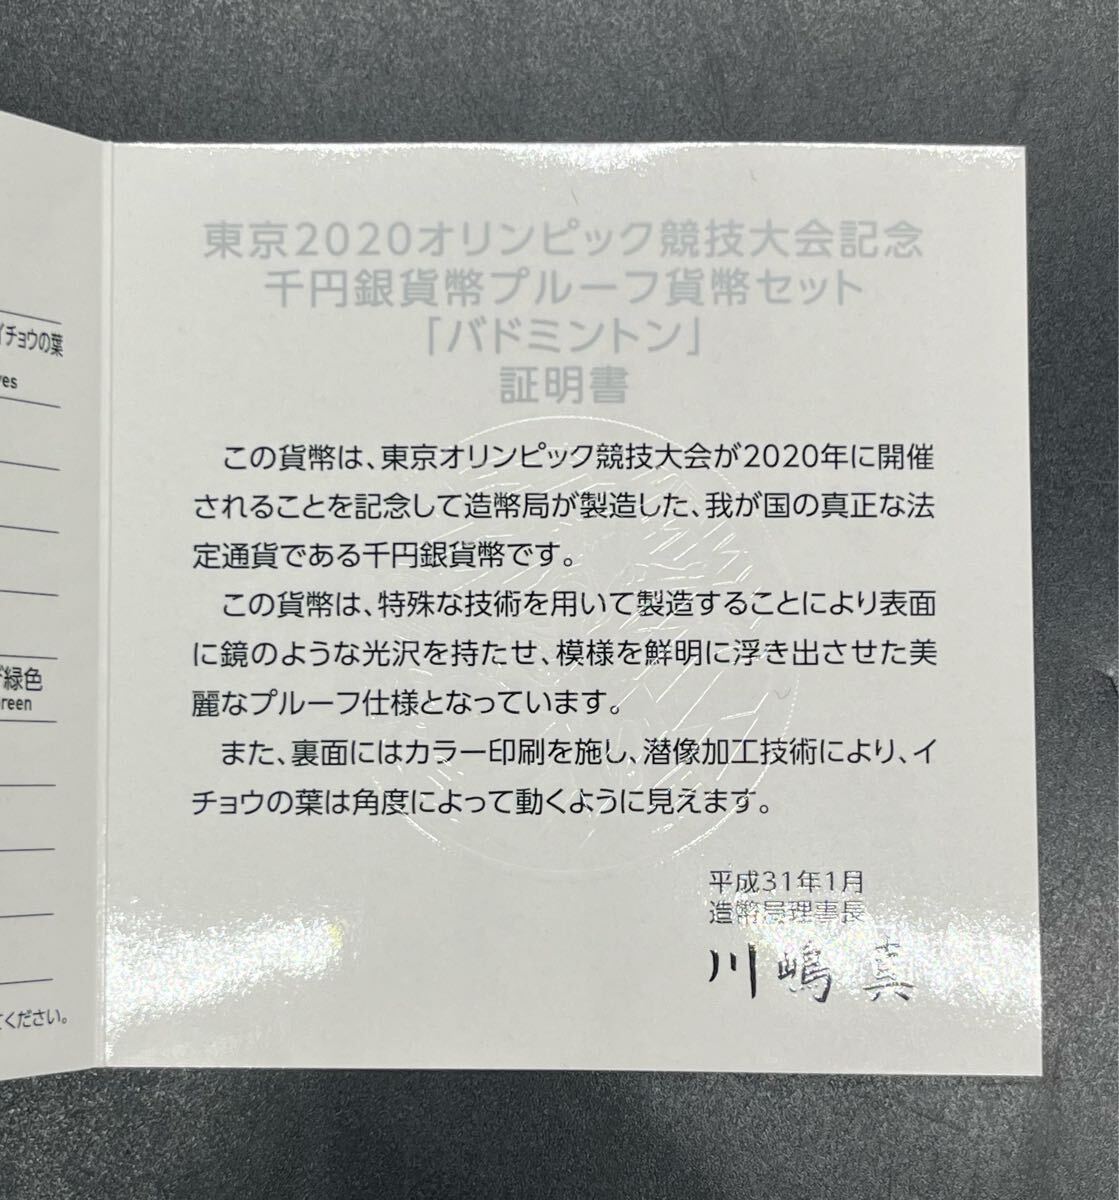 イチョウの葉
緑色
ください。
東京2020オリンピック競技大会記念
千円銀貨幣プルーフ貨幣セット
「バドミントン」
証明書
この貨幣は、東京オリンピック競技大会が2020年に開催
されることを記念して造幣局が製造した、我が国の真正な法
定通貨である千円銀貨幣です。
この貨幣は、特殊な技術を用いて製造することにより表面
に鏡のような光沢を持たせ、模様を鮮明に浮き出させた美
麗なプルーフ仕様となっています。
また、裏面にはカラー印刷を施し、潜像加工技術により、イ
チョウの葉は角度によって動くように見えます。
平成31年1月
造幣局理事長
川嶋 真